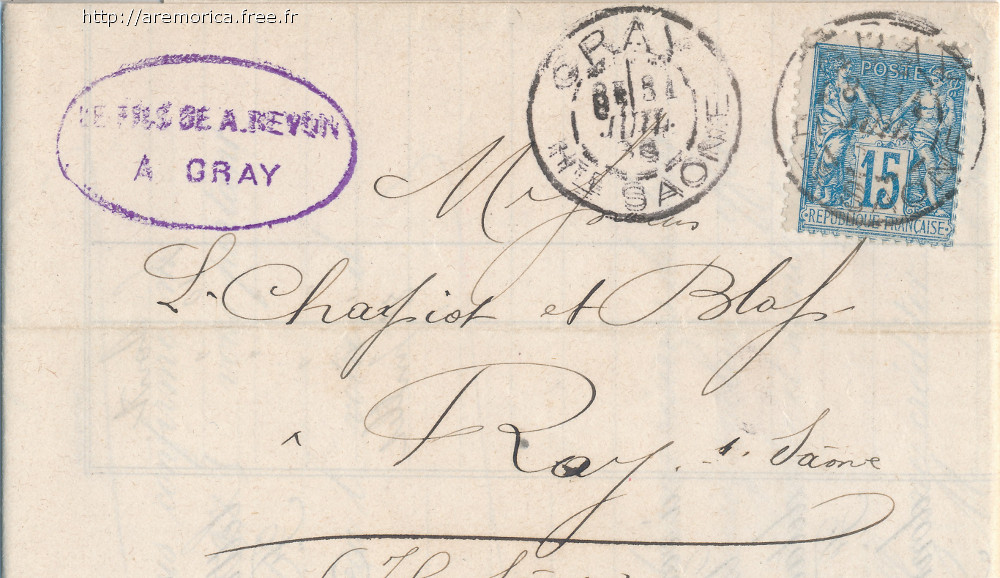 http://aremorica.free.fr
LE FILS DE A. REVON
A GRAY
GRAY
31
JUIL
Hte SAONE
POSTES
15
REPUBLIQUE FRANÇAISE
Messieurs
L. Chassiot et Blass
à Ray s. Saône